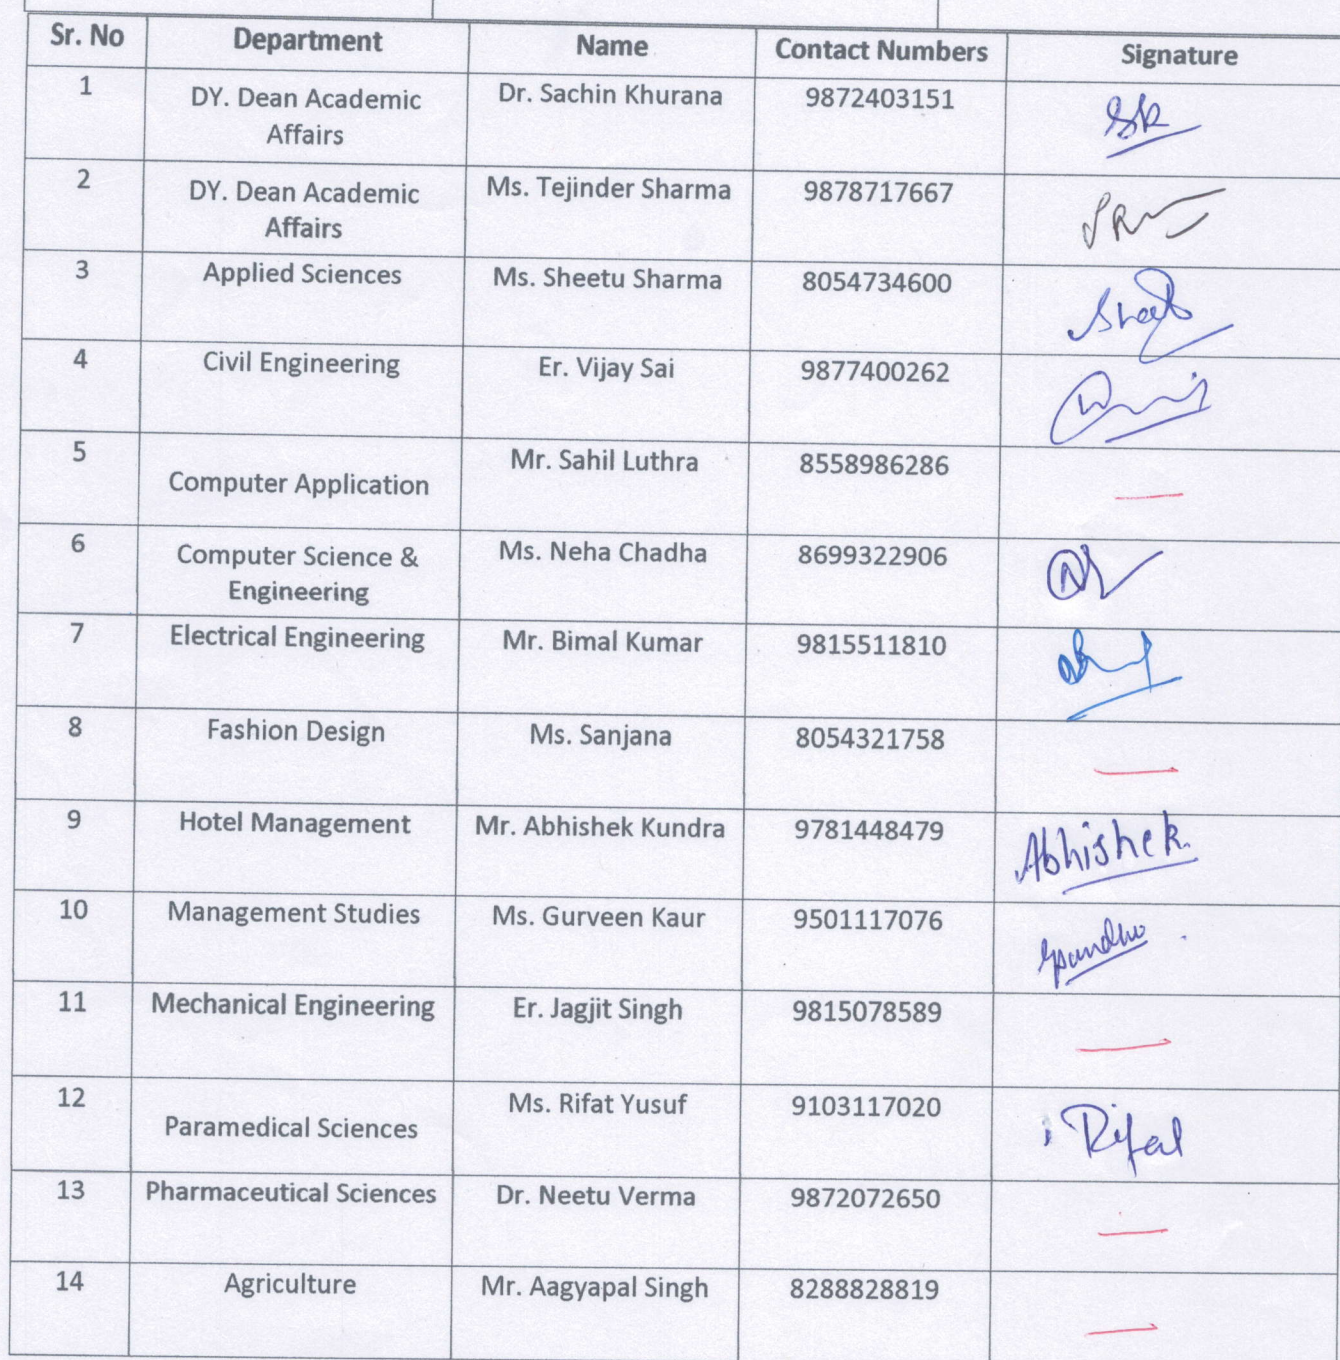 Sr. No Department Name Contact Numbers Signature
1 DY. Dean Academic Dr. Sachin Khurana 9872403151 SK
Affairs
2 DY. Dean Academic Ms. Tejinder Sharma 9878717667
Affairs
3 Applied Sciences Ms. Sheetu Sharma 8054734600
4 Civil Engineering Er. Vijay Sai 9877400262
5 Mr. Sahil Luthra 8558986286
Computer Application
6 Computer Science & Ms. Neha Chadha 8699322906
Engineering
7 Electrical Engineering Mr. Bimal Kumar 9815511810
8 Fashion Design Ms. Sanjana 8054321758
9 Hotel Management Mr. Abhishek Kundra 9781448479 Abhishek.
10 Management Studies Ms. Gurveen Kaur 9501117076
11 Mechanical Engineering Er. Jagjit Singh 9815078589
12 Ms. Rifat Yusuf 9103117020 Rifat
Paramedical Sciences
13 Pharmaceutical Sciences Dr. Neetu Verma 9872072650
14 Agriculture Mr. Aagyapal Singh 8288828819